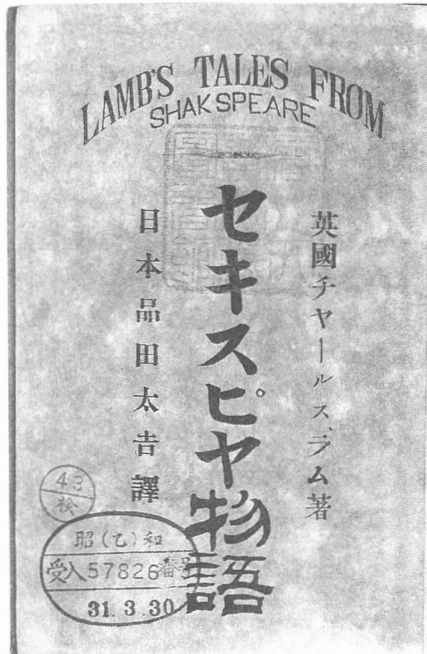 LAMB'S TALES FROM
SHAKSPEARE
英國チヤールス、ラム著
セキスピヤ物語
日本品田太吉譯
43
検
昭(乙)和
受入57826番号
31.3.30